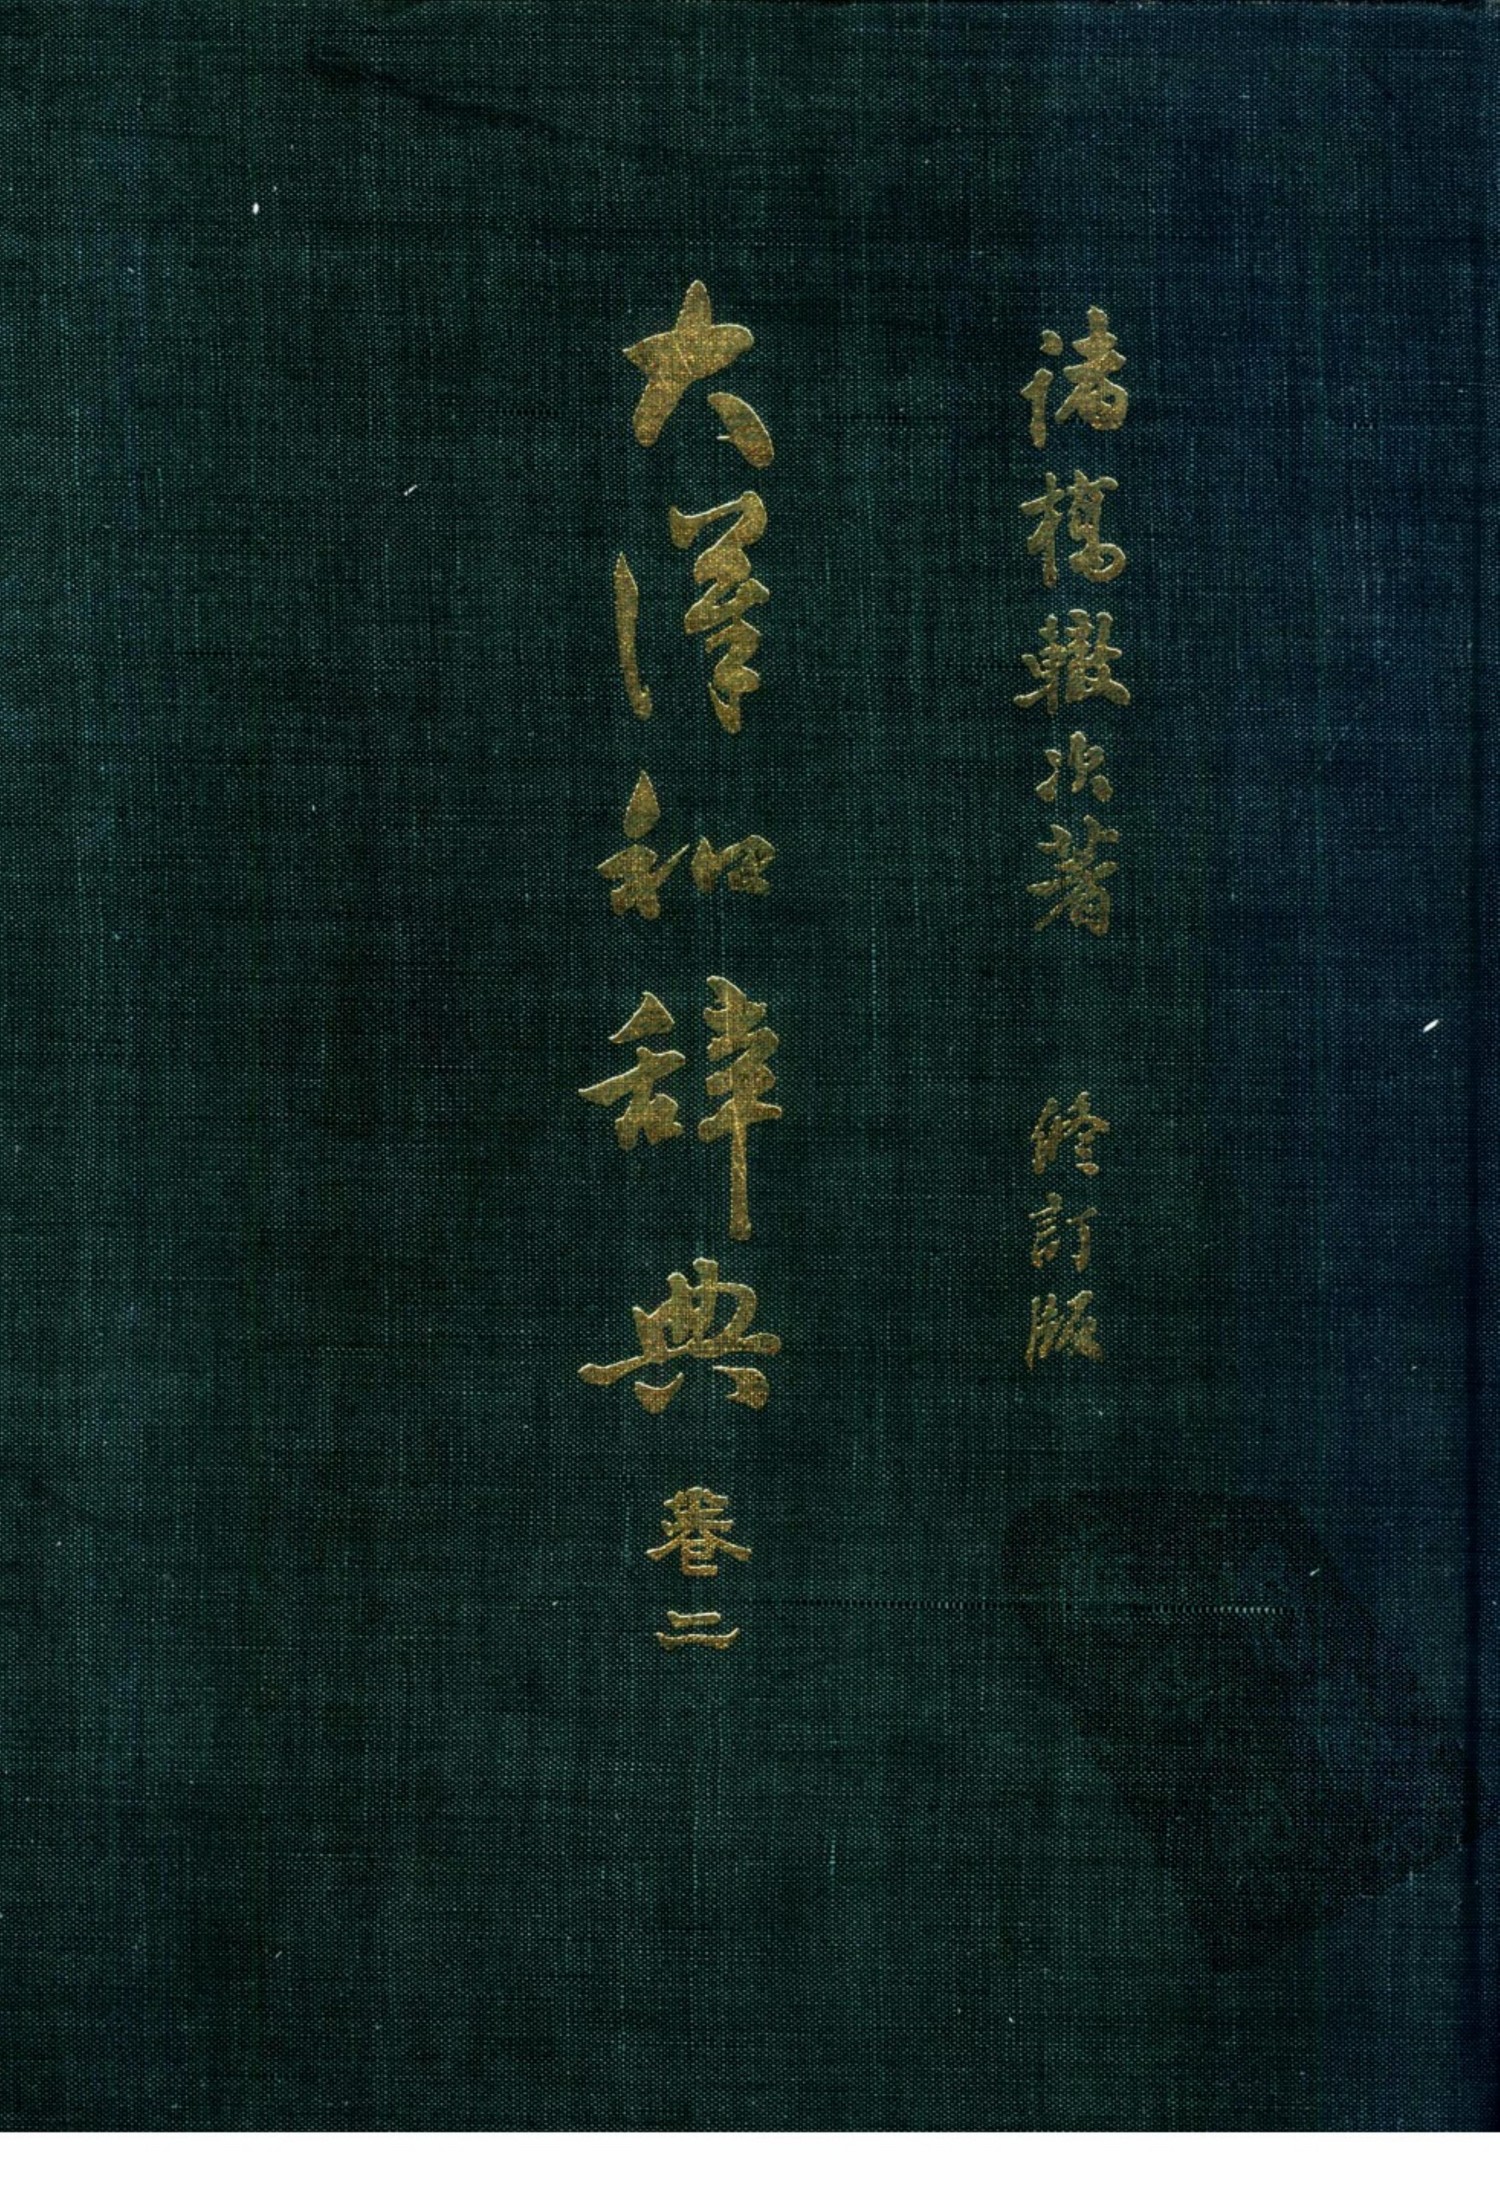 諸橋轍次著 修訂版
大漢和辞典 巻二